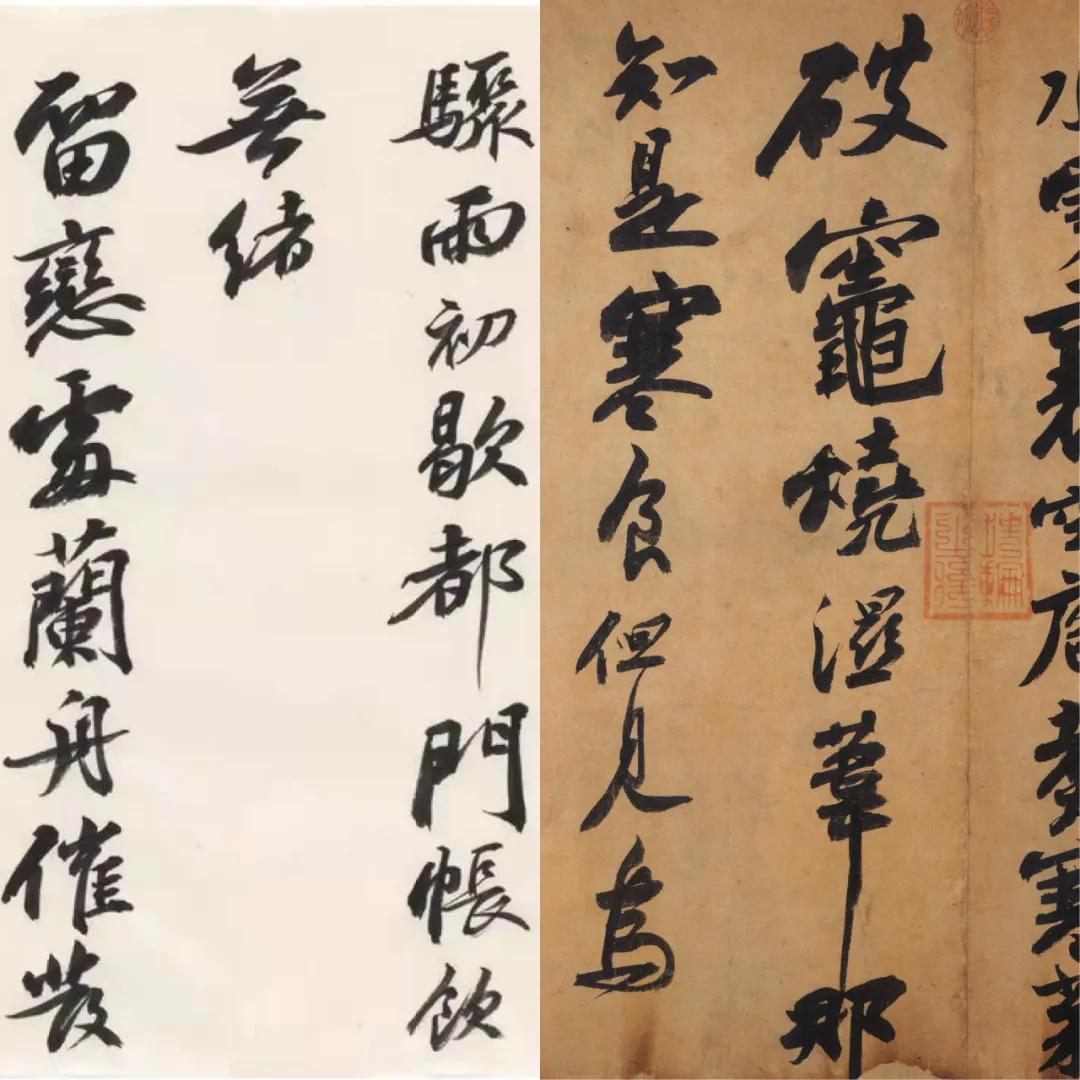 驟雨初歇都門帳飲
無緒
留戀處蘭舟催發
水雲裏空庖煮寒菜
破竈燒濕葦那
知是寒食但見烏